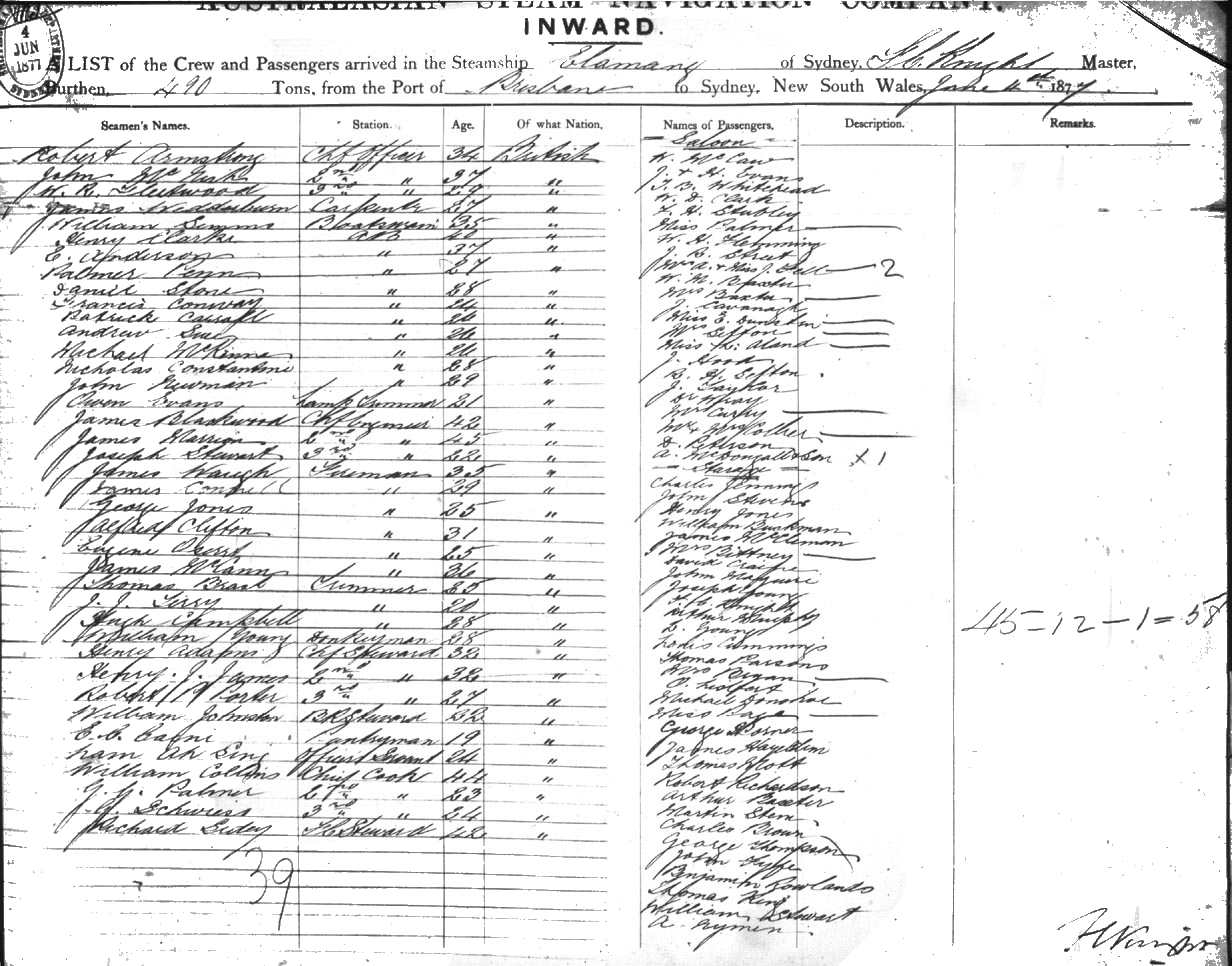 AUSTRALASIAN STEAM NAVIGATION COMPANY.
INWARD.
4
JUN
1877
SYDNEY
A LIST of the Crew and Passengers arrived in the Steamship Elamang of Sydney, F. C. Knight Master,
Burthen, 490 Tons, from the Port of Brisbane to Sydney, New South Wales, June 4th 1877.
Seamen's Names. Station. Age. Of what Nation, Names of Passengers, Description. Remarks.
Robert Armstrong Chf Officer 34 British
John McNish 2nd " 37 "
W. R. Fleetwood 3rd " 29 "
James Wedderburn Carpenter 27 "
William Simms 35 "
Henry Clarke AB 40 "
E. Anderson " 37 "
Palmer Penn " 27 "
Daniel Stone " 28 "
Francis Conway " 24 "
Patrick Carroll " "
Andrew " 26 "
Michael McKinna " 26 "
Nicholas Constantine " 28 "
John Newman " 29 "
Owen Evans Lamp Trimmer 21 "
James Blackwood Chf Engineer 42 "
James Marrion 2nd " 45 "
Joseph Stewart 3rd " 22 "
James Waugh Fireman 35 "
James Connell " 29 "
George Jones " 25 "
Alfred Clifton " 31 "
Eugene " 25 "
James McCann " 36 "
Thomas Trimmer 25 "
J. J. Terry " 20 "
Hugh Campbell " 28 "
William Young Donkeyman 28 "
Henry Adams Chf Steward 32 "
Henry. J. James 2nd " 32 "
Robert Porter 3rd " 27 "
William Johnston B R Steward 22 "
C. C. Pantryman 19 "
Ah Sing Officers Servant 24 "
William Collins Chief Cook 44 "
Palmer 2nd " 23 "
J. Schwiess 3rd " 24 "
Richard Steward 42 "
39
Saloon
W. McCaw
J. & H. Evans
T. B. Whitehead
W. D. Clark
F. H. Stubley
Miss Palmer
W. H. Flemming
J. B. Street
Mrs A. & Miss J. Bell 2
W. H. Baxter
Mrs Baxter
J. Cavanagh
Miss E. Dunstan
Mrs Sefton
Miss Aland
J. Hook
B. H. Sefton
J. Taylor
Dr Wray
Mrs Curry
Mr & Mrs Collier
D. Peterson
A. McDougall & Son x 1
Steerage
Charles Jennings
John Stevens
Henry Jones
William Buckman
James McClemon
Mrs Bittney
David
John Maguire
Joseph Young
Arthur
D. Young
Louis Cummings
Thomas Parsons
Mrs Bryan
Michael Donohoe
Miss Page
George Horner
James
Thomas Scott
Robert Richardson
Arthur Baxter
Martin Stem
Charles Brown
George Thompson
John Fyffe
Benjamin Rowlands
Thomas King
William Stewart
A. Nymen
45 - 12 - 1 = 58
F C Knight